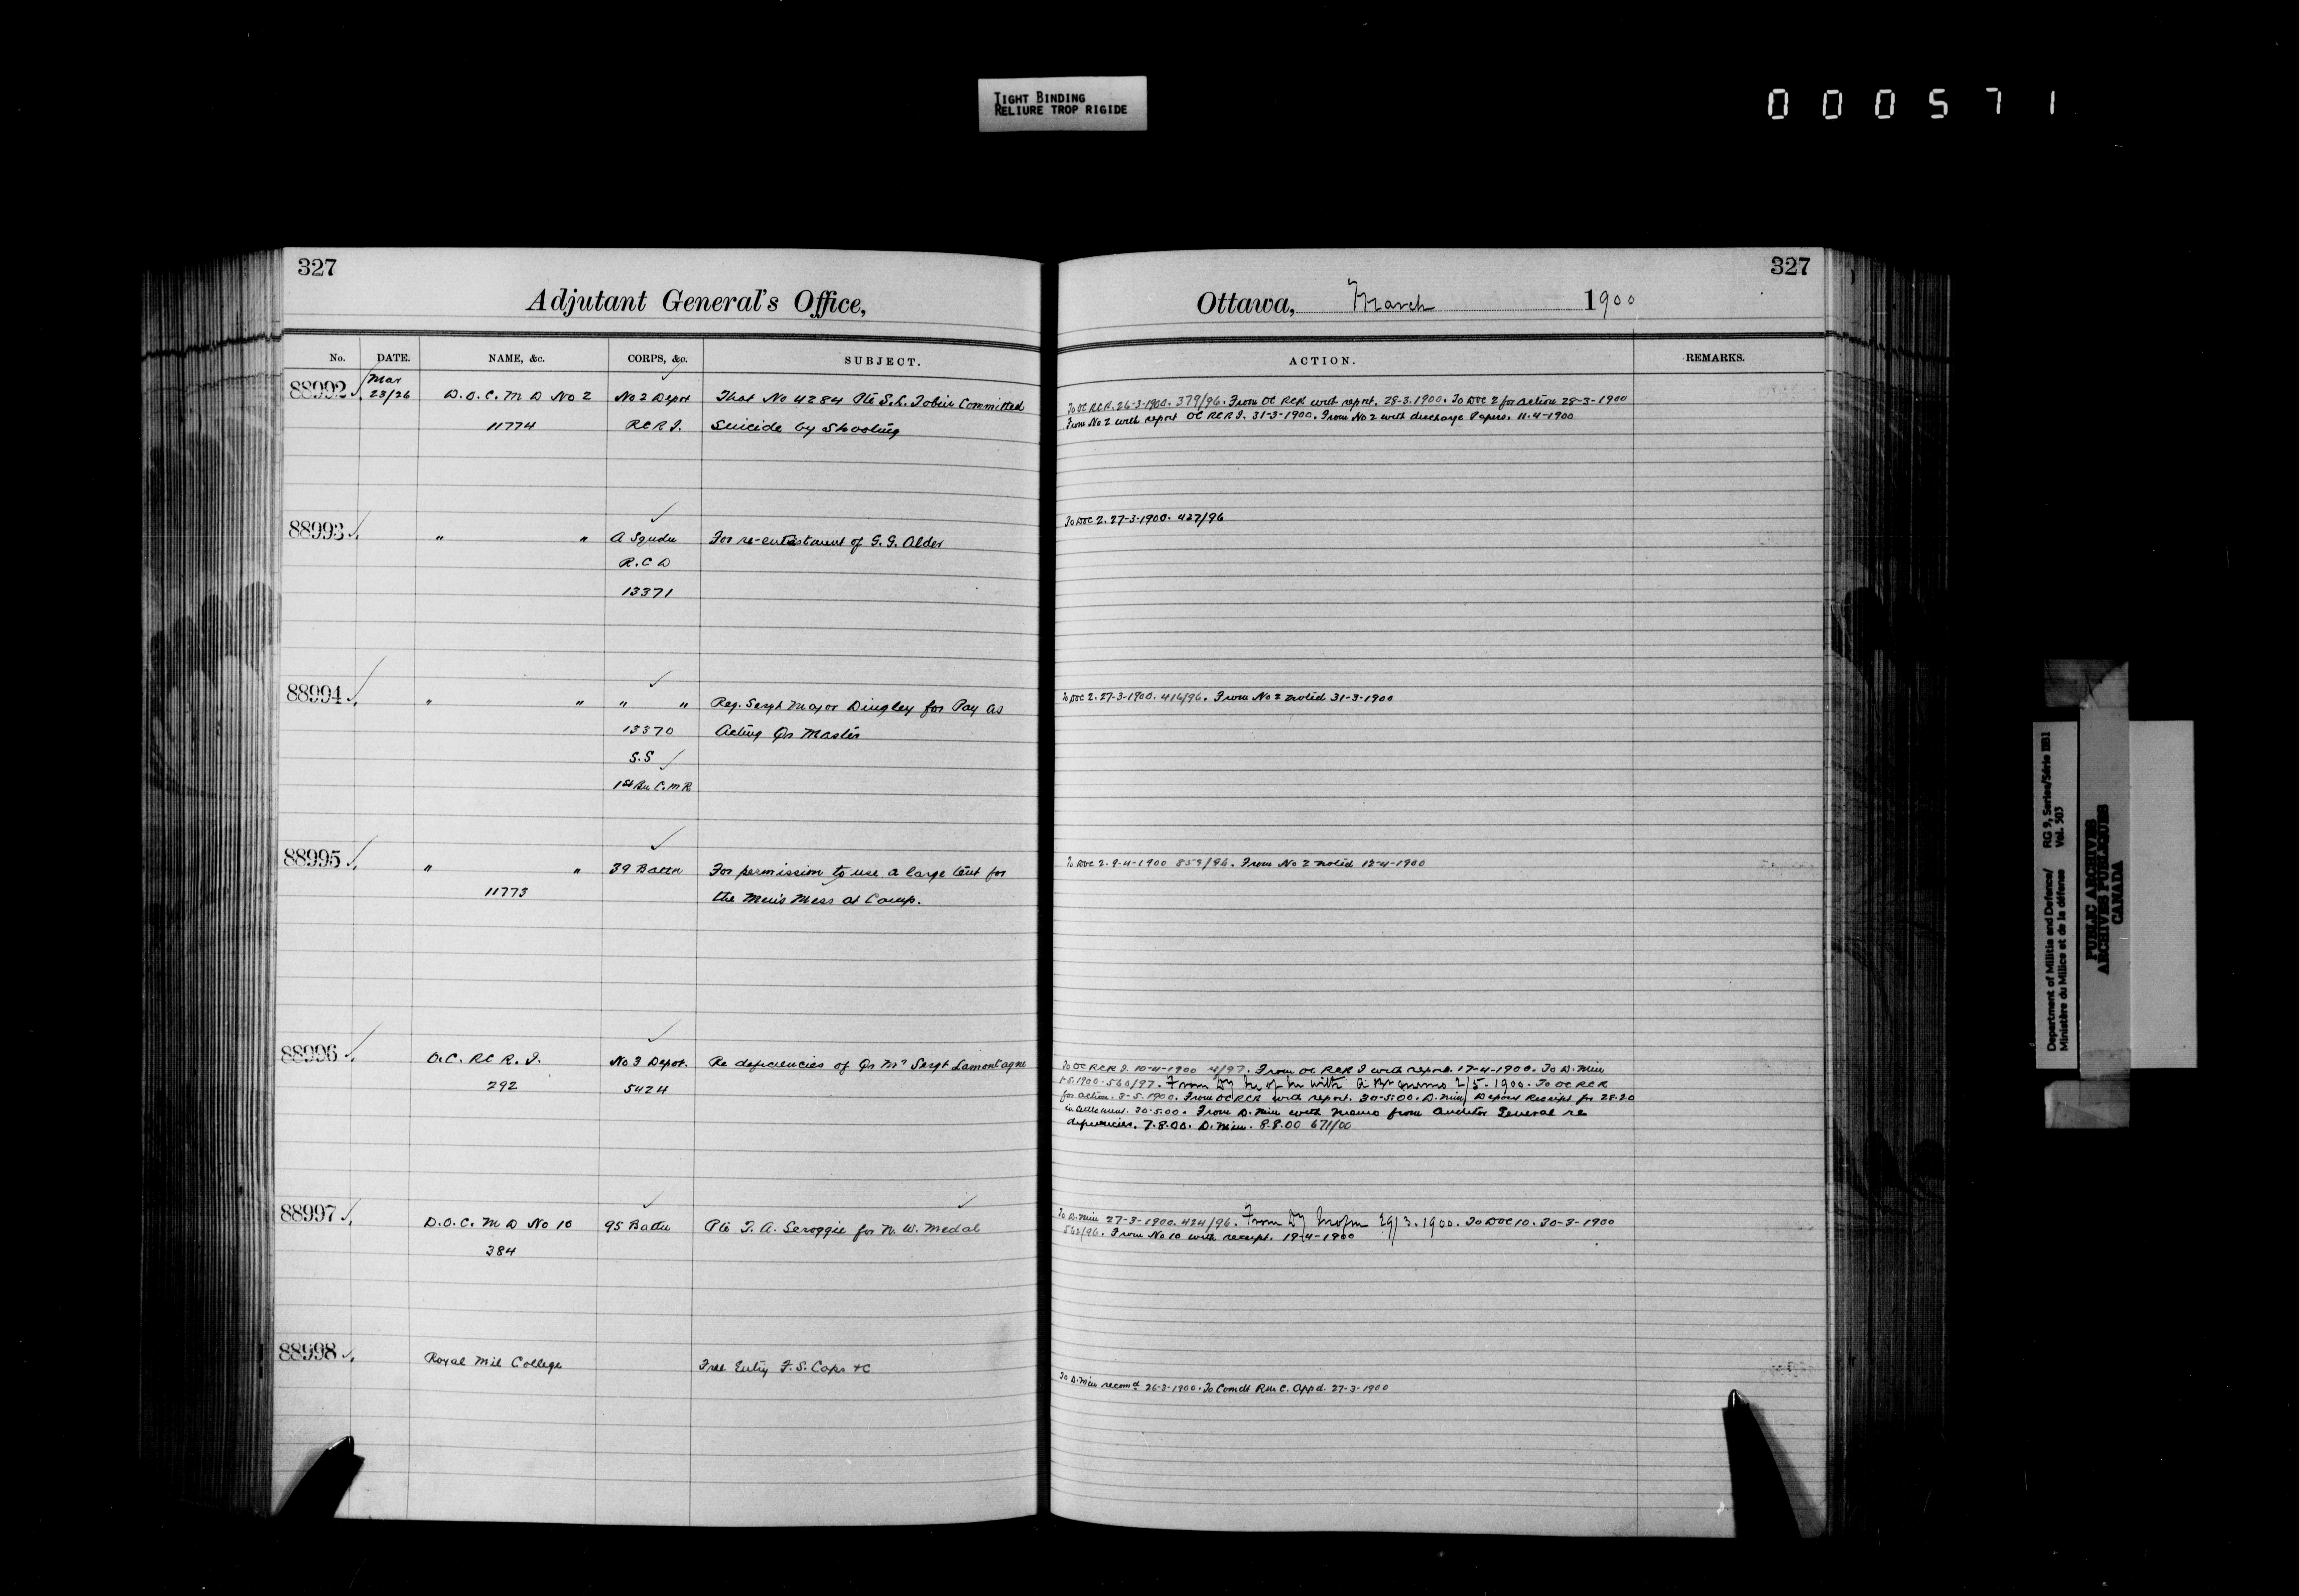 TIGHT BINDING
RELIURE TROP RIGIDE
000571
327
Adjutant General's Office,
No. DATE. NAME, &c. CORPS, &c. SUBJECT.
88992 Mar 23/26 D.O.C. M D No 2 No 2 Depot That No 4284 Pte S.L. Tobin Committed
11774 RCR I. Suicide by Shooting
88993 " " A Squdn For re-enlistment of G. G. Alder
R.C D
13371
88994 " " " " Reg. Sergt Major Dingley for Pay as
13370 Acting Qr Master
S.S
1st Bn C.M R
88995 " " 39 Battn For permission to use a large tent for
11773 the Men's Mess at Camp.
88996 O.C. RC R. I. No 3 Depot. Re deficiencies of Qr Mr Sergt Lamontagne
292 5424
88997 D.O.C. M D No 10 95 Battn Pte T. A. Scroggie for N. W. Medal
384
88998 Royal Mil College Free Entry F. S. Caps &c
327
Ottawa, March 1900
ACTION. REMARKS.
To OC RCR. 26-3-1900. 379/96. From OC RCR with report. 28-3-1900. To DOC 2 for action 28-3-1900
From No 2 with report OC RCR I. 31-3-1900. From No 2 with discharge Papers. 11-4-1900
To DOC 2. 27-3-1900. 427/96
To DOC 2. 27-3-1900. 416/96. From No 2 noted 31-3-1900
To DOC 2. 9-4-1900 859/96. From No 2 noted 12-4-1900
To OC RCR I. 10-4-1900 4/97. From OC RCR I with report. 17-4-1900. To D. Min
1-5-1900. 560/97. From Dy M of M with memo 2/5-1900. To OC RCR
for action. 3-5-1900. From OC RCR with report. 30-5-00. D. Min Deposit Receipt for 28.20
in settlement. 30-5-00. From D. Min with memo from Auditor General re
deficiencies. 7.8.00. D. Min. 8-8-00 671/00
To D. Min 27-3-1900. 424/96. From Dy M of M 29/3.1900. To DOC 10. 30-3-1900
562/96. From No 10 with receipt. 19-4-1900
To D. Min recomd 26-3-1900. To Comdt RM C. appd. 27-3-1900
Department of Militia and Defence/ RG 9, Series/Série IIB1
Ministère du Milice et de la défense Vol. 503
PUBLIC ARCHIVES
ARCHIVES PUBLIQUES
CANADA